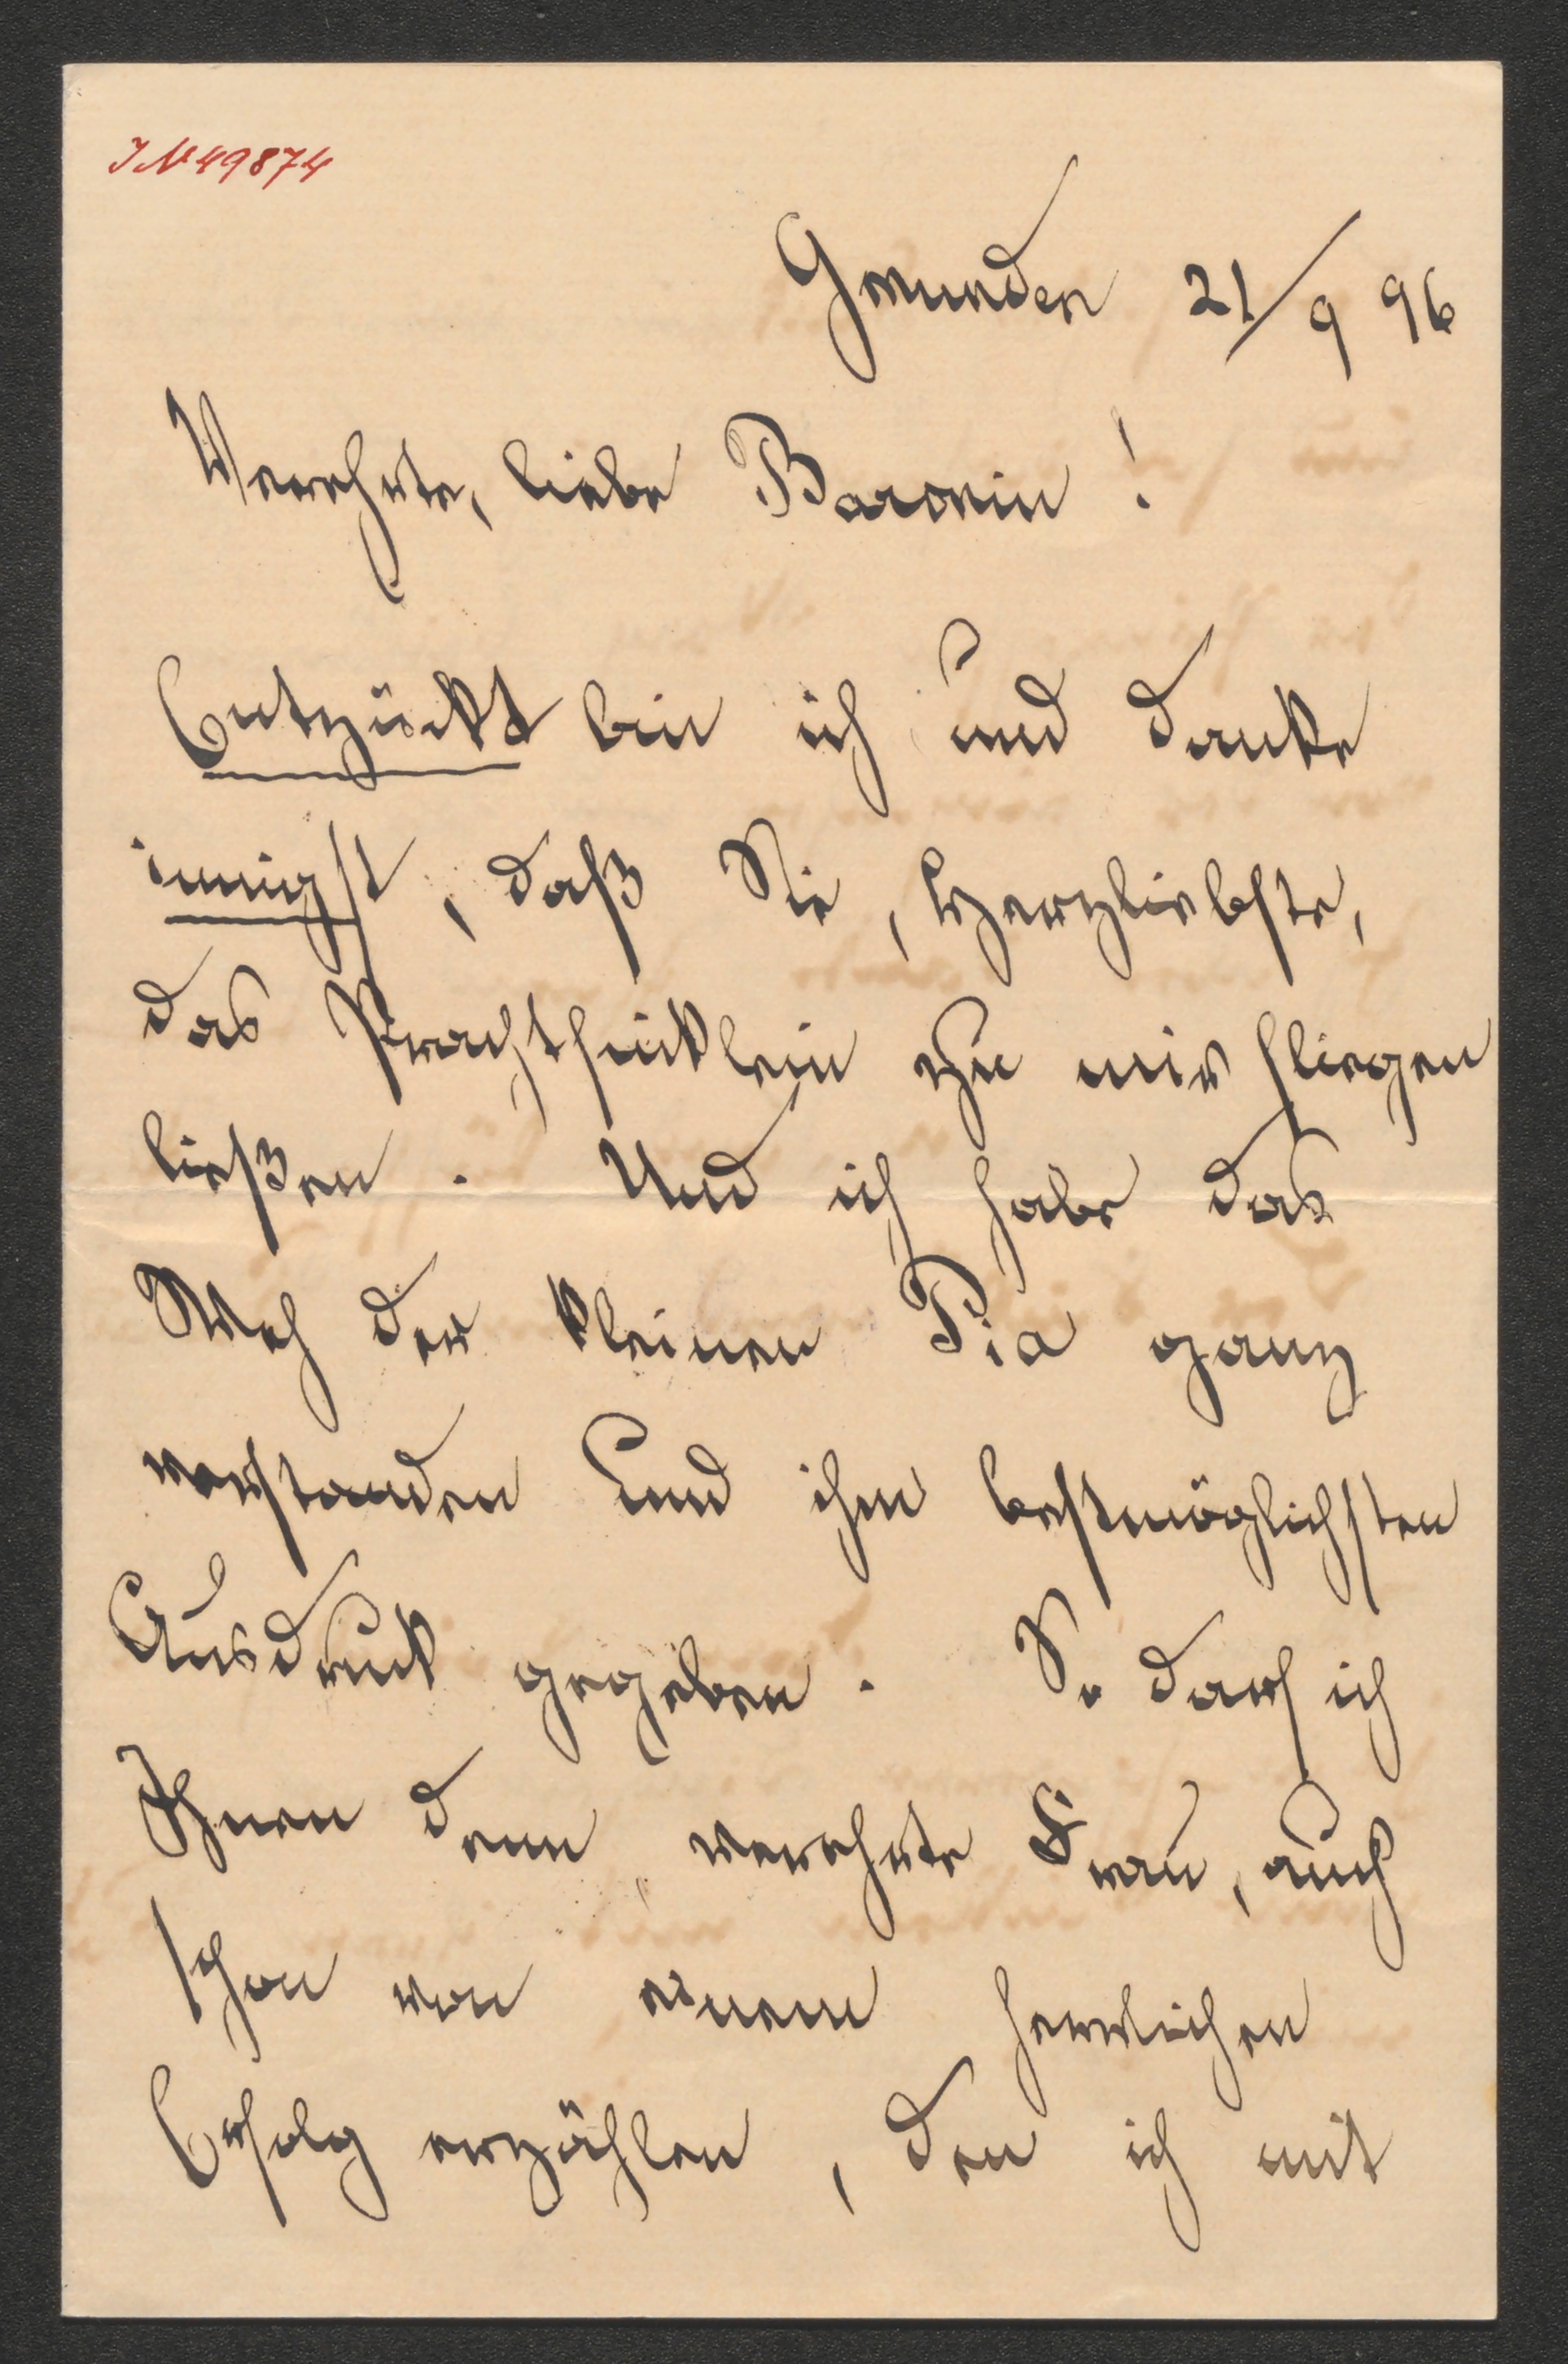 IN 49874
Gmunden 21/9 96
Verehrte, liebe Baronin!
Entzückt bin ich und danke
innigst, daß Sie, Herzliebste,
das Prachtstücklein zu mir fliegen
ließen. Und ich habe das
Weh der kleinen Pia ganz
verstanden und ihm bestmöglichsten
Ausdruck gegeben. So darf ich
Ihnen denn, verehrte Frau, auch
schon von einem herrlichen
Erfolg erzählen, den ich mit